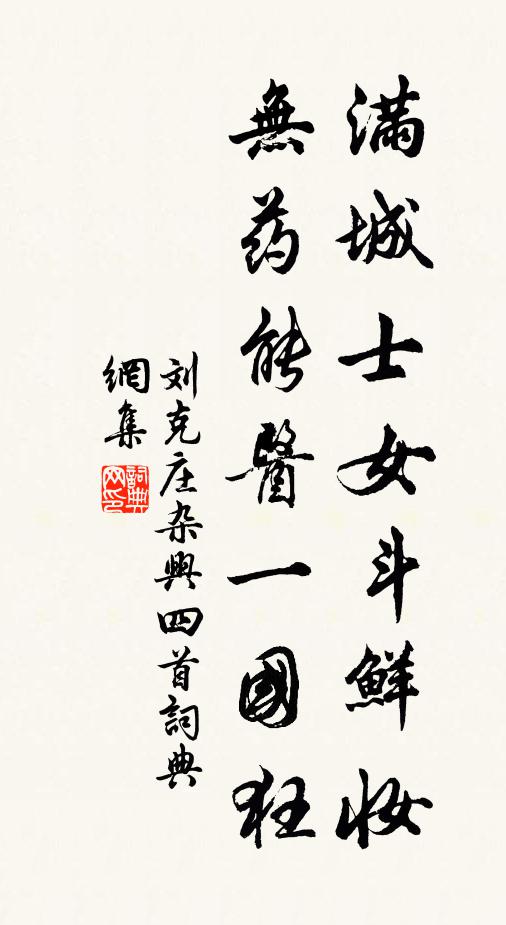 滿城士女斗鮮妝
無药能醫一國狂
刘克庄杂興四首詞典
網集
詞典网印